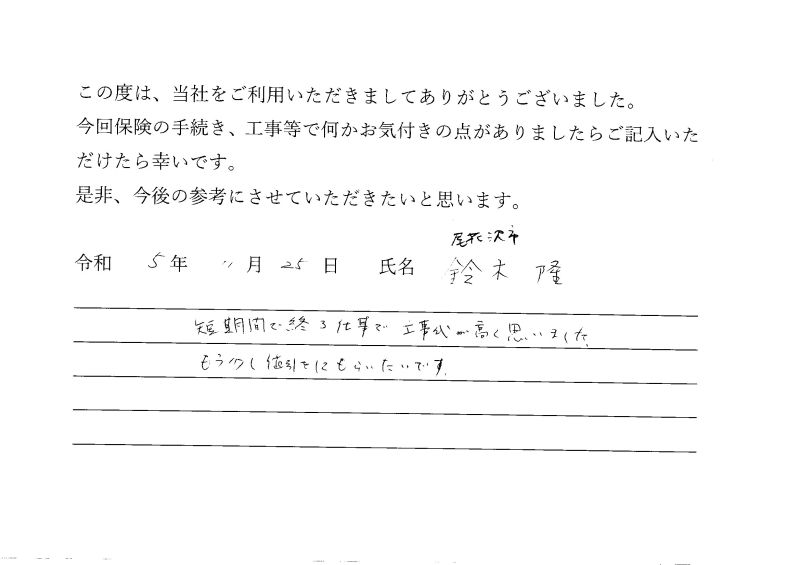 この度は、当社をご利用いただきましてありがとうございました。
今回保険の手続き、工事等で何かお気付きの点がありましたらご記入いた
だけたら幸いです。
是非、今後の参考にさせていただきたいと思います。
尾花沢市
令和 5 年 11 月 25 日 氏名 鈴木 隆
短期間で終る仕事で 工事代が高く思いました。
もう少し値引きにもらいたいです。